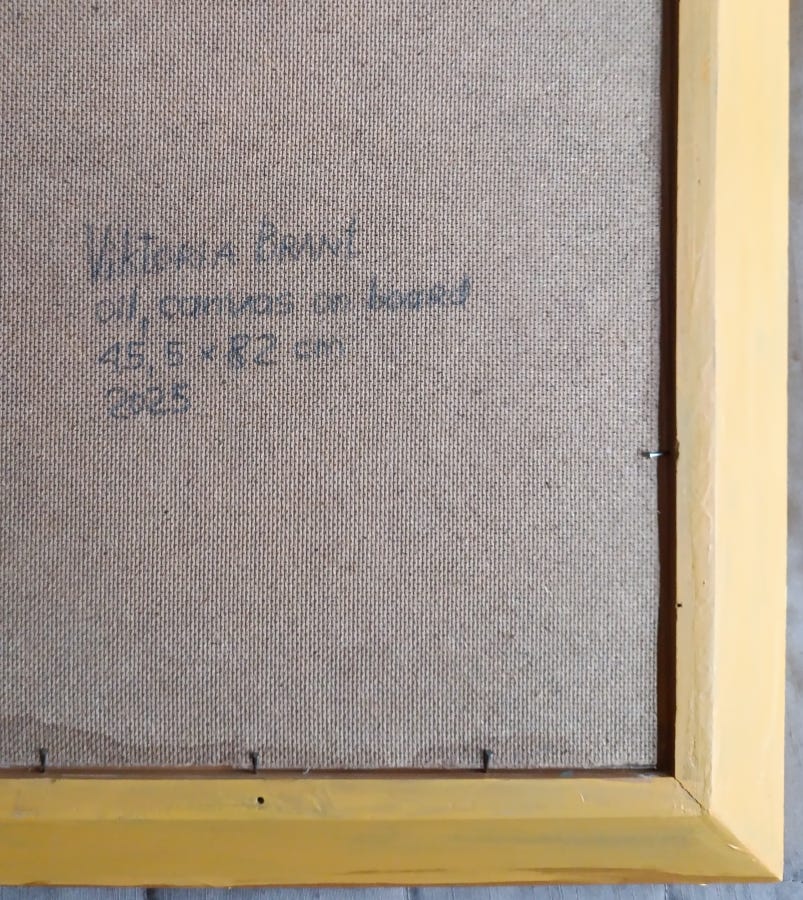 Viktoria Brant
oil, canvas on board
45,5 x 82 cm
2025